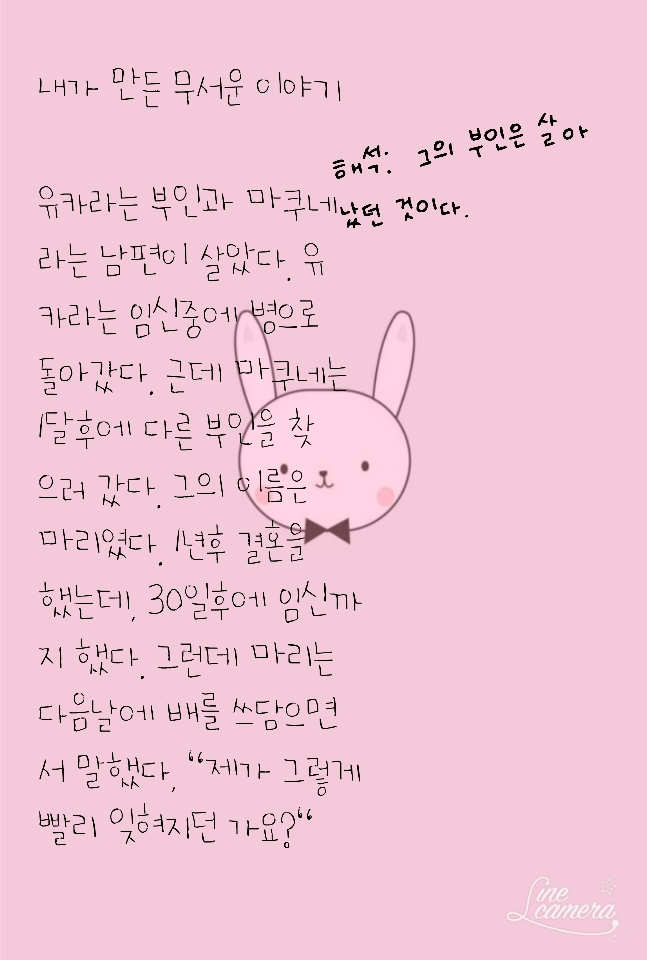 내가 만든 무서운 이야기
해석. 그의 부인은 살아
났던 것이다.
유카라는 부인과 마쿠네
라는 남편이 살았다. 유
카라는 임신중에 병으로
돌아갔다. 근데 마쿠네는
1달후에 다른 부인을 찾
으러 갔다. 그의 이름은
마리였다. 1년후 결혼을
했는데, 30일후에 임신까
지 했다. 그런데 마리는
다음날에 배를 쓰담으면
서 말했다, “제가 그렇게
빨리 잊혀지던 가요?“
Line camera